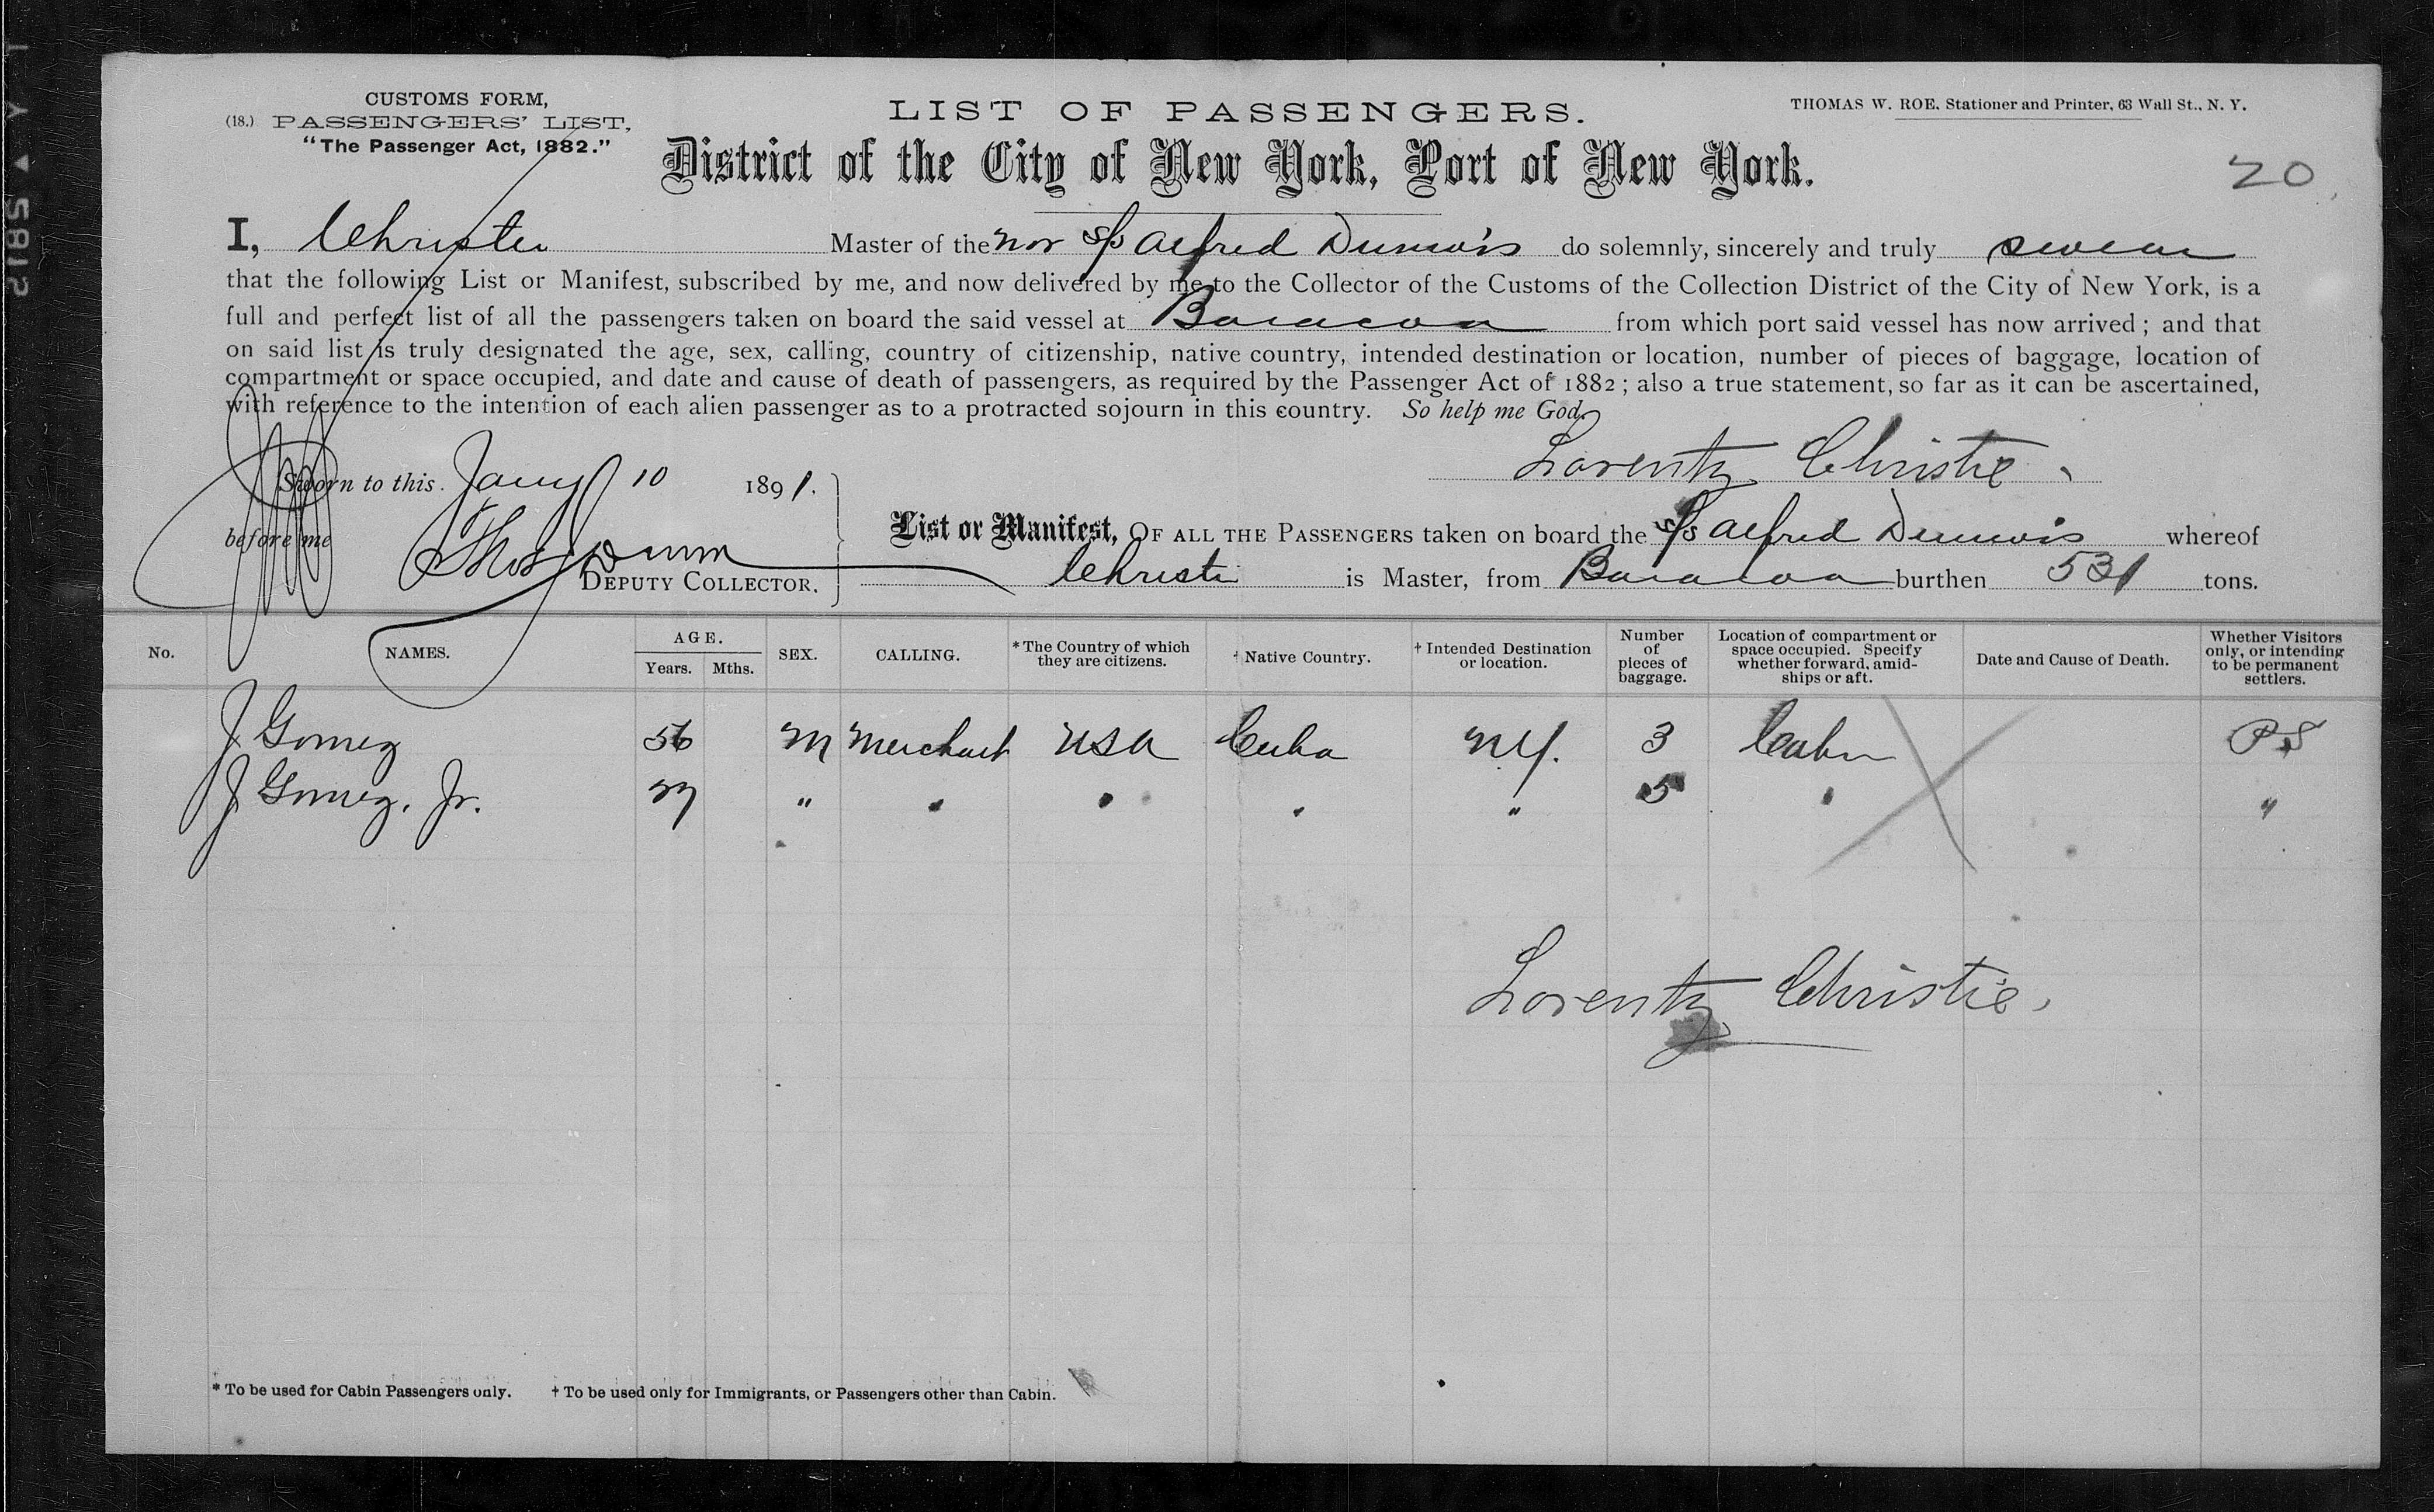 CUSTOMS FORM,
(18.) PASSENGERS' LIST,
"The Passenger Act, 1882."
LIST OF PASSENGERS.
THOMAS W. ROE, Stationer and Printer, 63 Wall St., N. Y.
District of the City of New York, Port of New York.
20
I, Christie Master of the Nor S/S Alfred Dumois do solemnly, sincerely and truly swear
that the following List or Manifest, subscribed by me, and now delivered by me to the Collector of the Customs of the Collection District of the City of New York, is a
full and perfect list of all the passengers taken on board the said vessel at Baracoa from which port said vessel has now arrived; and that
on said list is truly designated the age, sex, calling, country of citizenship, native country, intended destination or location, number of pieces of baggage, location of
compartment or space occupied, and date and cause of death of passengers, as required by the Passenger Act of 1882; also a true statement, so far as it can be ascertained,
with reference to the intention of each alien passenger as to a protracted sojourn in this country. So help me God.
Lorentz Christie.
Sworn to this Jany 10 1891.
before me
DEPUTY COLLECTOR.
List or Manifest, OF ALL THE PASSENGERS taken on board the S/S Alfred Dumois whereof
Christie is Master, from Baracoa burthen 531 tons.
No. NAMES. AGE. Years. Mths. SEX. CALLING. * The Country of which they are citizens. † Native Country. † Intended Destination or location. Number of pieces of baggage. Location of compartment or space occupied. Specify whether forward, amidships or aft. Date and Cause of Death. Whether Visitors only, or intending to be permanent settlers.
J Gomez 56 M Merchant USA Cuba NY. 3 Cabin PS
J Gomez, Jr. 27 " " " " " 5 " "
Lorentz Christie.
* To be used for Cabin Passengers only. † To be used only for Immigrants, or Passengers other than Cabin.